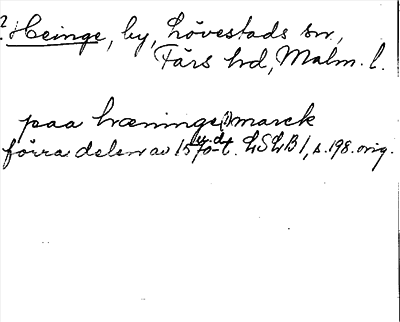 ? Heinge, by, Lövestads sn,
Färs hd, Malm. l.
paa hæninge(?) marck
förra delen av 1570-t. LSLB 1, s. 198. orig.